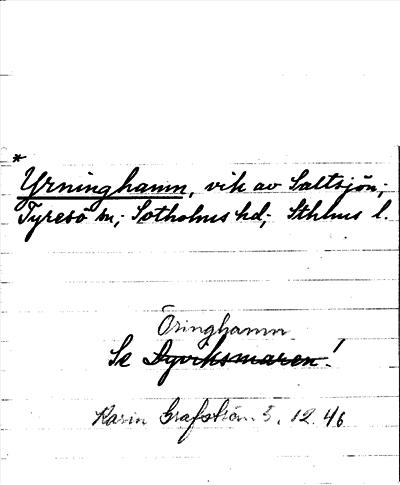 *
Yrninghamn, vik av Saltsjön;
Tyresö sn; Sotholms hd; Sthlms l.
Öringhamn
Se Dyviksmaren!
Karin Grafström 5. 12. 46